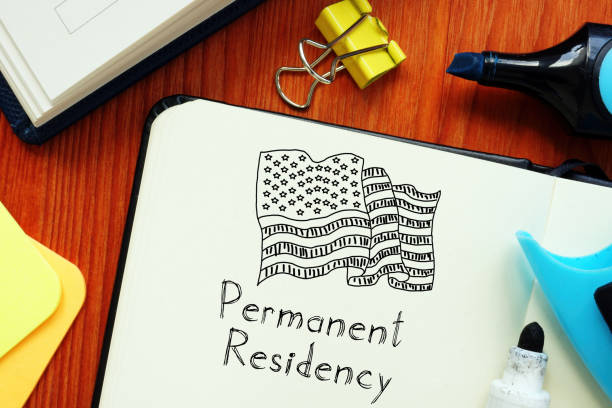 Permanent
Residency